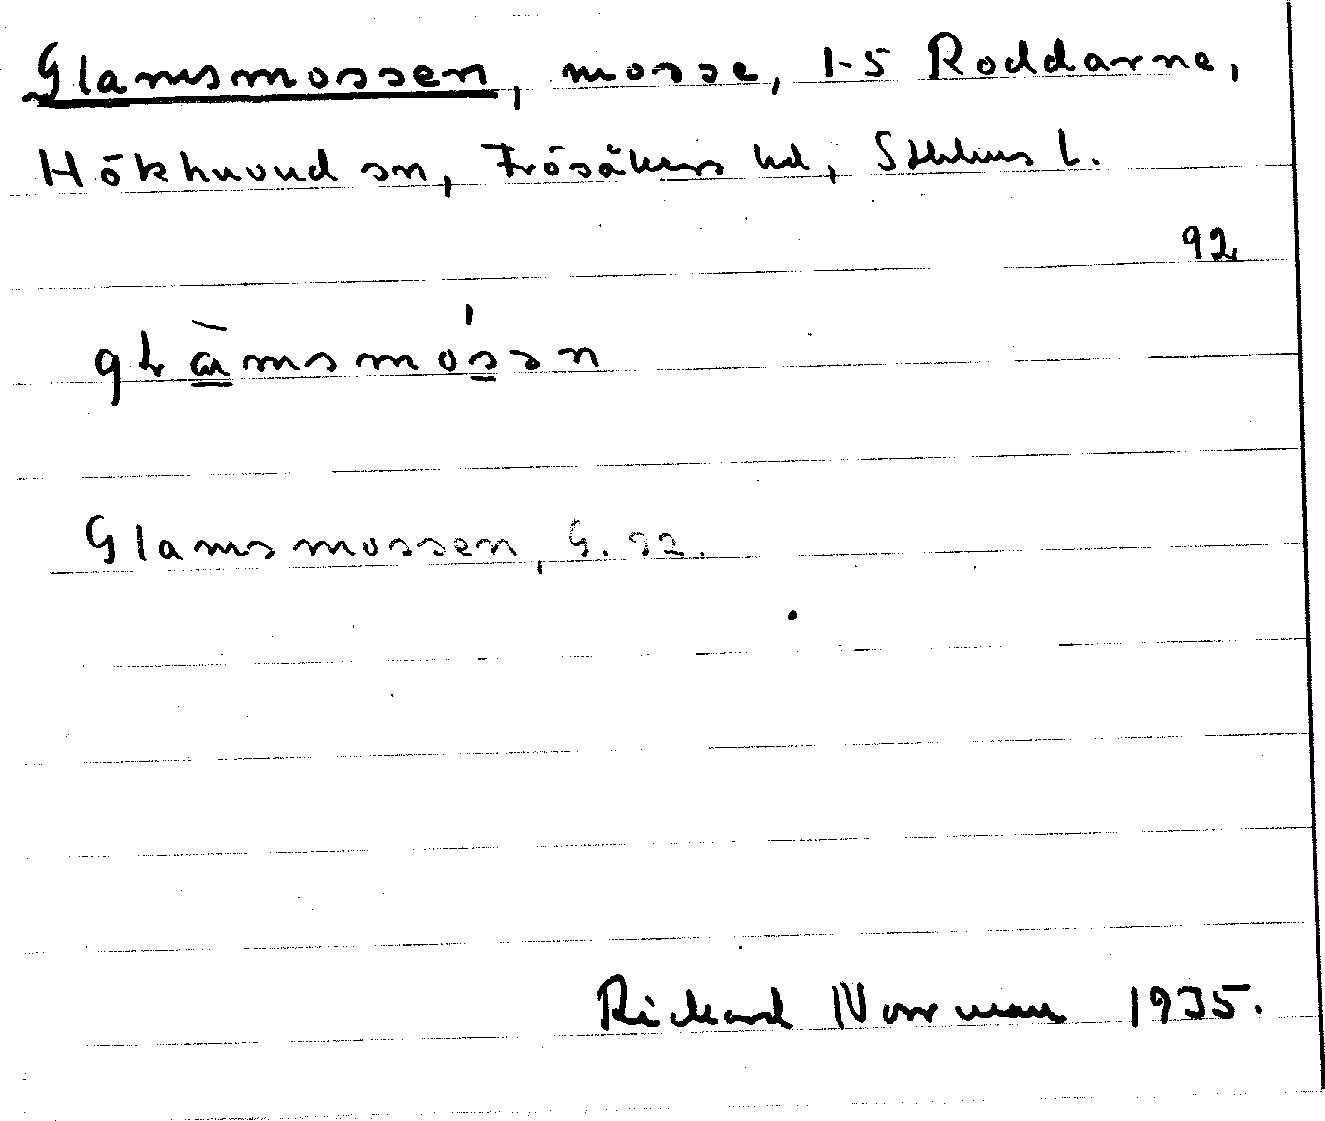 Glamsmossen, mosse, 1-5 Roddarne,
Hökhuvud sn, Frösåkers hd, Sthlms l.
92
gLàmsmósan
Glamsmossen, G. 92.
Rickard Norrman 1935.